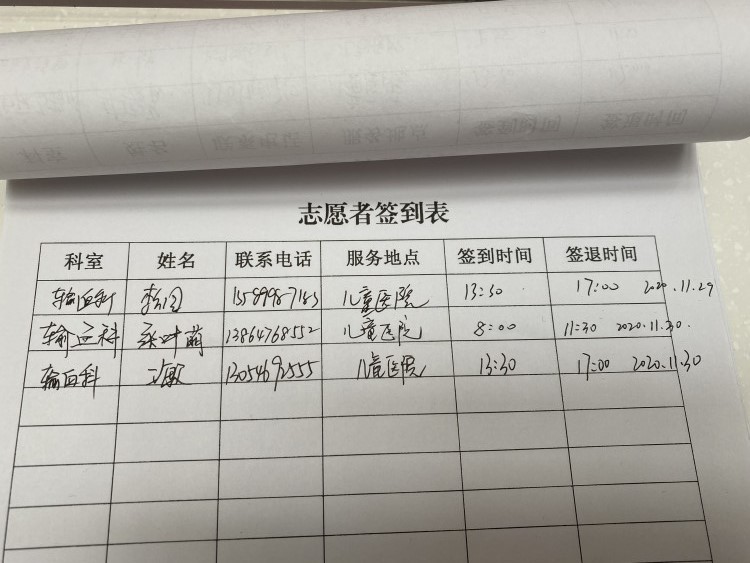 志愿者签到表
科室 姓名 联系电话 服务地点 签到时间 签退时间
输血科 儿童医院 13:30 17:00 2020.11.29
输血科 13864768552 儿童医院 8:00 11:30 2020.11.30.
输血科 13054692555 儿童医院 13:30 17:00 2020.11.30